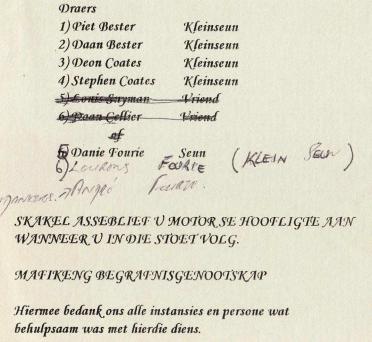 Draers
1) Piet Bester Kleinseun
2) Daan Bester Kleinseun
3) Deon Coates Kleinseun
4) Stephen Coates Kleinseun
5) Louis Snyman Vriend
6) Daan Cellier Vriend
of
5) Danie Fourie Seun
6) Lourens FOURIE (KLEIN SEUN)
André Fourie.
SKAKEL ASSEBLIEF U MOTOR SE HOOFLIGTE AAN
WANNEER U IN DIE STOET VOLG.
MAFIKENG BEGRAFNISGENOOTSKAP
Hiermee bedank ons alle instansies en persone wat
behulpsaam was met hierdie diens.